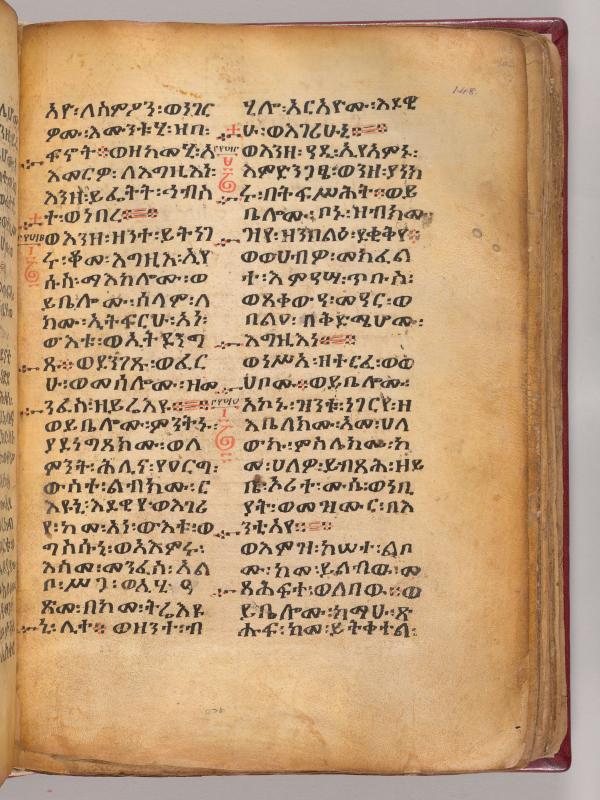 እዮ፡ለስምዖን፡ወነገር
ዎሙ፡እሙንቱሂ፡ዘበ፡
ፍኖት፡ወዘከመሂ፡አ
እመርዎ፡ለእግዚእነ፡
እንዘ፡ይፌትት፡ኅብስ
ተ፡ወነበረ፡
ወእንዘ፡ዘንተ፡ይትናገ
ሩ፡ቆመ፡እግዚእ፡ኢየ
ሱስ፡ማእከሎሙ፡ወ
ይቤሎሙ፡ሰላም፡ለ
ክሙ፡ኢትፍርሁ፡አነ፡
ውእቱ፡ወኢትደንግ
ጹ፡ወደንገጹ፡ወፈር
ሁ፡ወመሰሎሙ፡ዘመ
ንፈስ፡ዘይሬእዩ፡
ወይቤሎሙ፡ምንትኑ፡
ያደነግጸክሙ፡ወለ
ምንት፡ሕሊና፡የዐርግ፡
ውስተ፡ልብክሙ፡ር
እዩኒ፡እደዊየ፡ወእገሪ
የ፡ከመ፡አነ፡ውእቱ፡ወ
ግስሱኒ፡ወአእምሩ፡
እስመ፡መንፈስ፡አል
ቦ፡ሥጋ፡ወኢሂ፡ዓ
ጽመ፡በከመ፡ትሬእዩ
ኒ፡ሊተ፡ወዘንተ፡ብ
ሂሎ፡አርአዮሙ፡እደዊ
ሁ፡ወእገሪሁኒ፡
ወእንዘ፡ዓዲ፡ኢየአምኑ፡
እምድንጋፄ፡ወእንዘ፡ያነክ
ሩ፡በትፍሥሕት፡ወይ
ቤሎሙ፡ቦኑ፡ዝብክሙ፡
ዝየ፡ዘንበልዕ፡ደቂቅየ፡
ወወሀብዎ፡መክፈል
ተ፡እምዓሣ፡ጥቡስ፡
ወጸቀወዓ፡መዓር፡ወ
በልዐ፡በቅድሜሆሙ፡
እግዚእነ፡
ወነሥአ፡ዘተርፈ፡ወወ
ሀቦሙ፡ወይቤሎሙ፡
እኮኑ፡ዝንቱ፡ነገርየ፡ዘ
እቤለክሙ፡አመ፡ሀለ
ውኩ፡ምስሌክሙ፡ከ
መ፡ሀለዎ፡ይብጻሕ፡ዘይ
ቤ፡ኦሪተ፡ሙሴ፡ወነቢ
ያት፡ወመዝሙር፡በእ
ንቲአየ፡
ወእምዝ፡ከሠተ፡ልቦ
ሙ፡ከመ፡ይለብዉ፡መ
ጻሕፍተ፡ወለበዉ፡ወ
ይቤሎሙ፡ከማሁ፡ጽ
ሑፍ፡ከመ፡ይትቀተል፡
148.